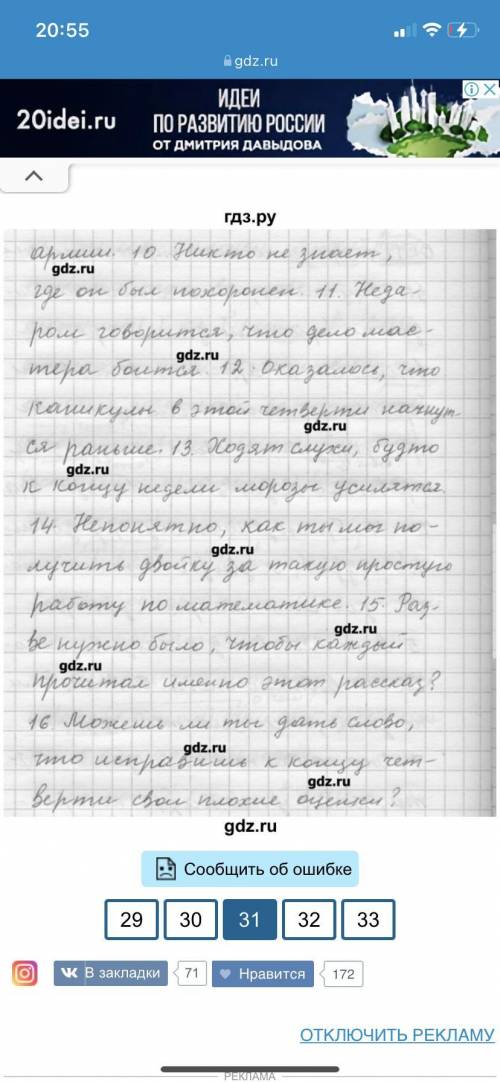 20:55
gdz.ru
20idei.ru
ИДЕИ
ПО РАЗВИТИЮ РОССИИ
ОТ ДМИТРИЯ ДАВЫДОВА
гдз.ру
армии. 10. Никто не знает,
gdz.ru
где он был похоронен. 11. Неда-
ром говорится, что дело мас-
gdz.ru
тера боится. 12. Оказалось, что
каникулы в этой четверти начнут-
gdz.ru
ся раньше. 13. Ходят слухи, будто
gdz.ru
к концу недели морозы усилятся.
14. Непонятно, как ты мог по-
gdz.ru
лучить двойку за такую простую
работу по математике. 15. Раз-
gdz.ru
ве нужно было, чтобы каждый
gdz.ru
прочитал именно этот рассказ?
16. Можешь ли ты дать слово,
gdz.ru
что исправишь к концу чет-
gdz.ru
верти свои плохие оценки?
gdz.ru
Сообщить об ошибке
29 30 31 32 33
В закладки 71 Нравится 172
ОТКЛЮЧИТЬ РЕКЛАМУ
РЕКЛАМА